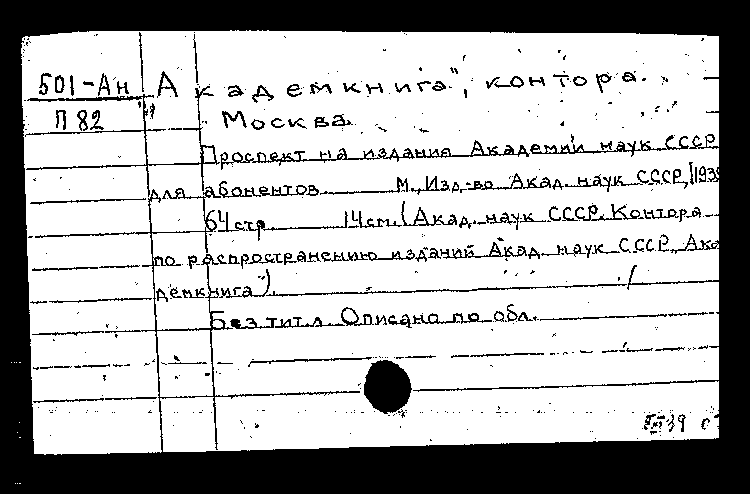 501-Ан
П 82
"Академкнига", контора.
Москва.
Проспект на издания Академии наук СССР
для абонентов. М., Изд-во Акад. наук СССР, [1939
64 стр. 14 см. (Акад. наук СССР. Контора
по распространению изданий Акад. наук СССР „Ака
демкнига").
Без тит. л. Описано по обл.
39